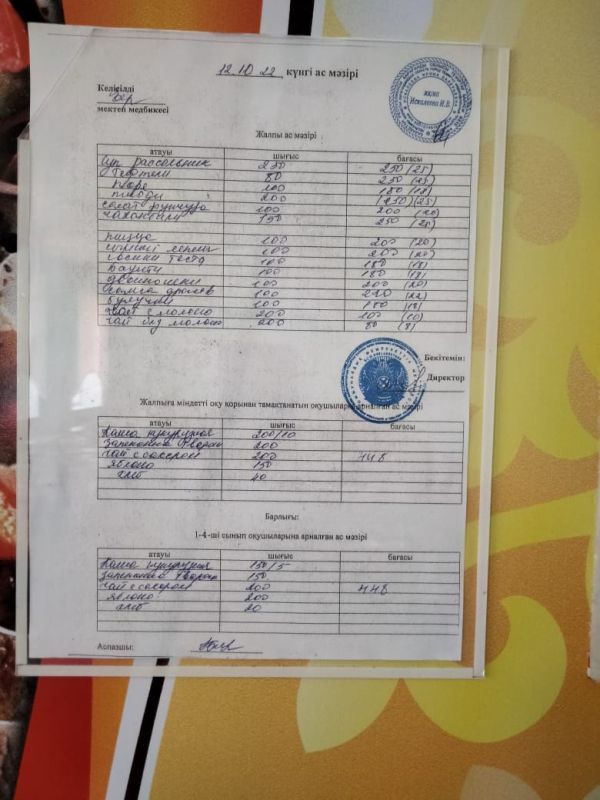 12.10.22 күнгі ас мәзірі
Келісілді
мектеп медбикесі
ЖШЖО
Искалеева И.В.
Жалпы ас мәзірі
атауы шығыс бағасы
суп рассольник 250 250 (25)
Тефтели 80 250 (25)
пюре 100 180 (18)
200 250 (25)
салат фунчуза 100 200 (20)
150 250 (25)
пицца 100 200 (20)
100 200 (20)
сосики тесто 100 180 (18)
100 180 (18)
100 200 (20)
100 220 (22)
100 180 (18)
чай с молоко 200 100 (10)
чай б/д молоко 200 80 (8)
Бекітемін:
Директор
Жалпыға міндетті оқу қорынан тамақтанатын оқушыларға арналған ас мәзірі
атауы шығыс бағасы
Каша кукурузная 200/10
Запеканка творож 200
чай с сахаром 200 448
яблоко 150
хлеб 40
Барлығы:
1-4-ші сынып оқушыларына арналған ас мәзірі
атауы шығыс бағасы
Каша кукурузная 150/5
Запеканка творож 150
чай с сахаром 200 448
яблоко 200
хлеб 20
Аспазшы: